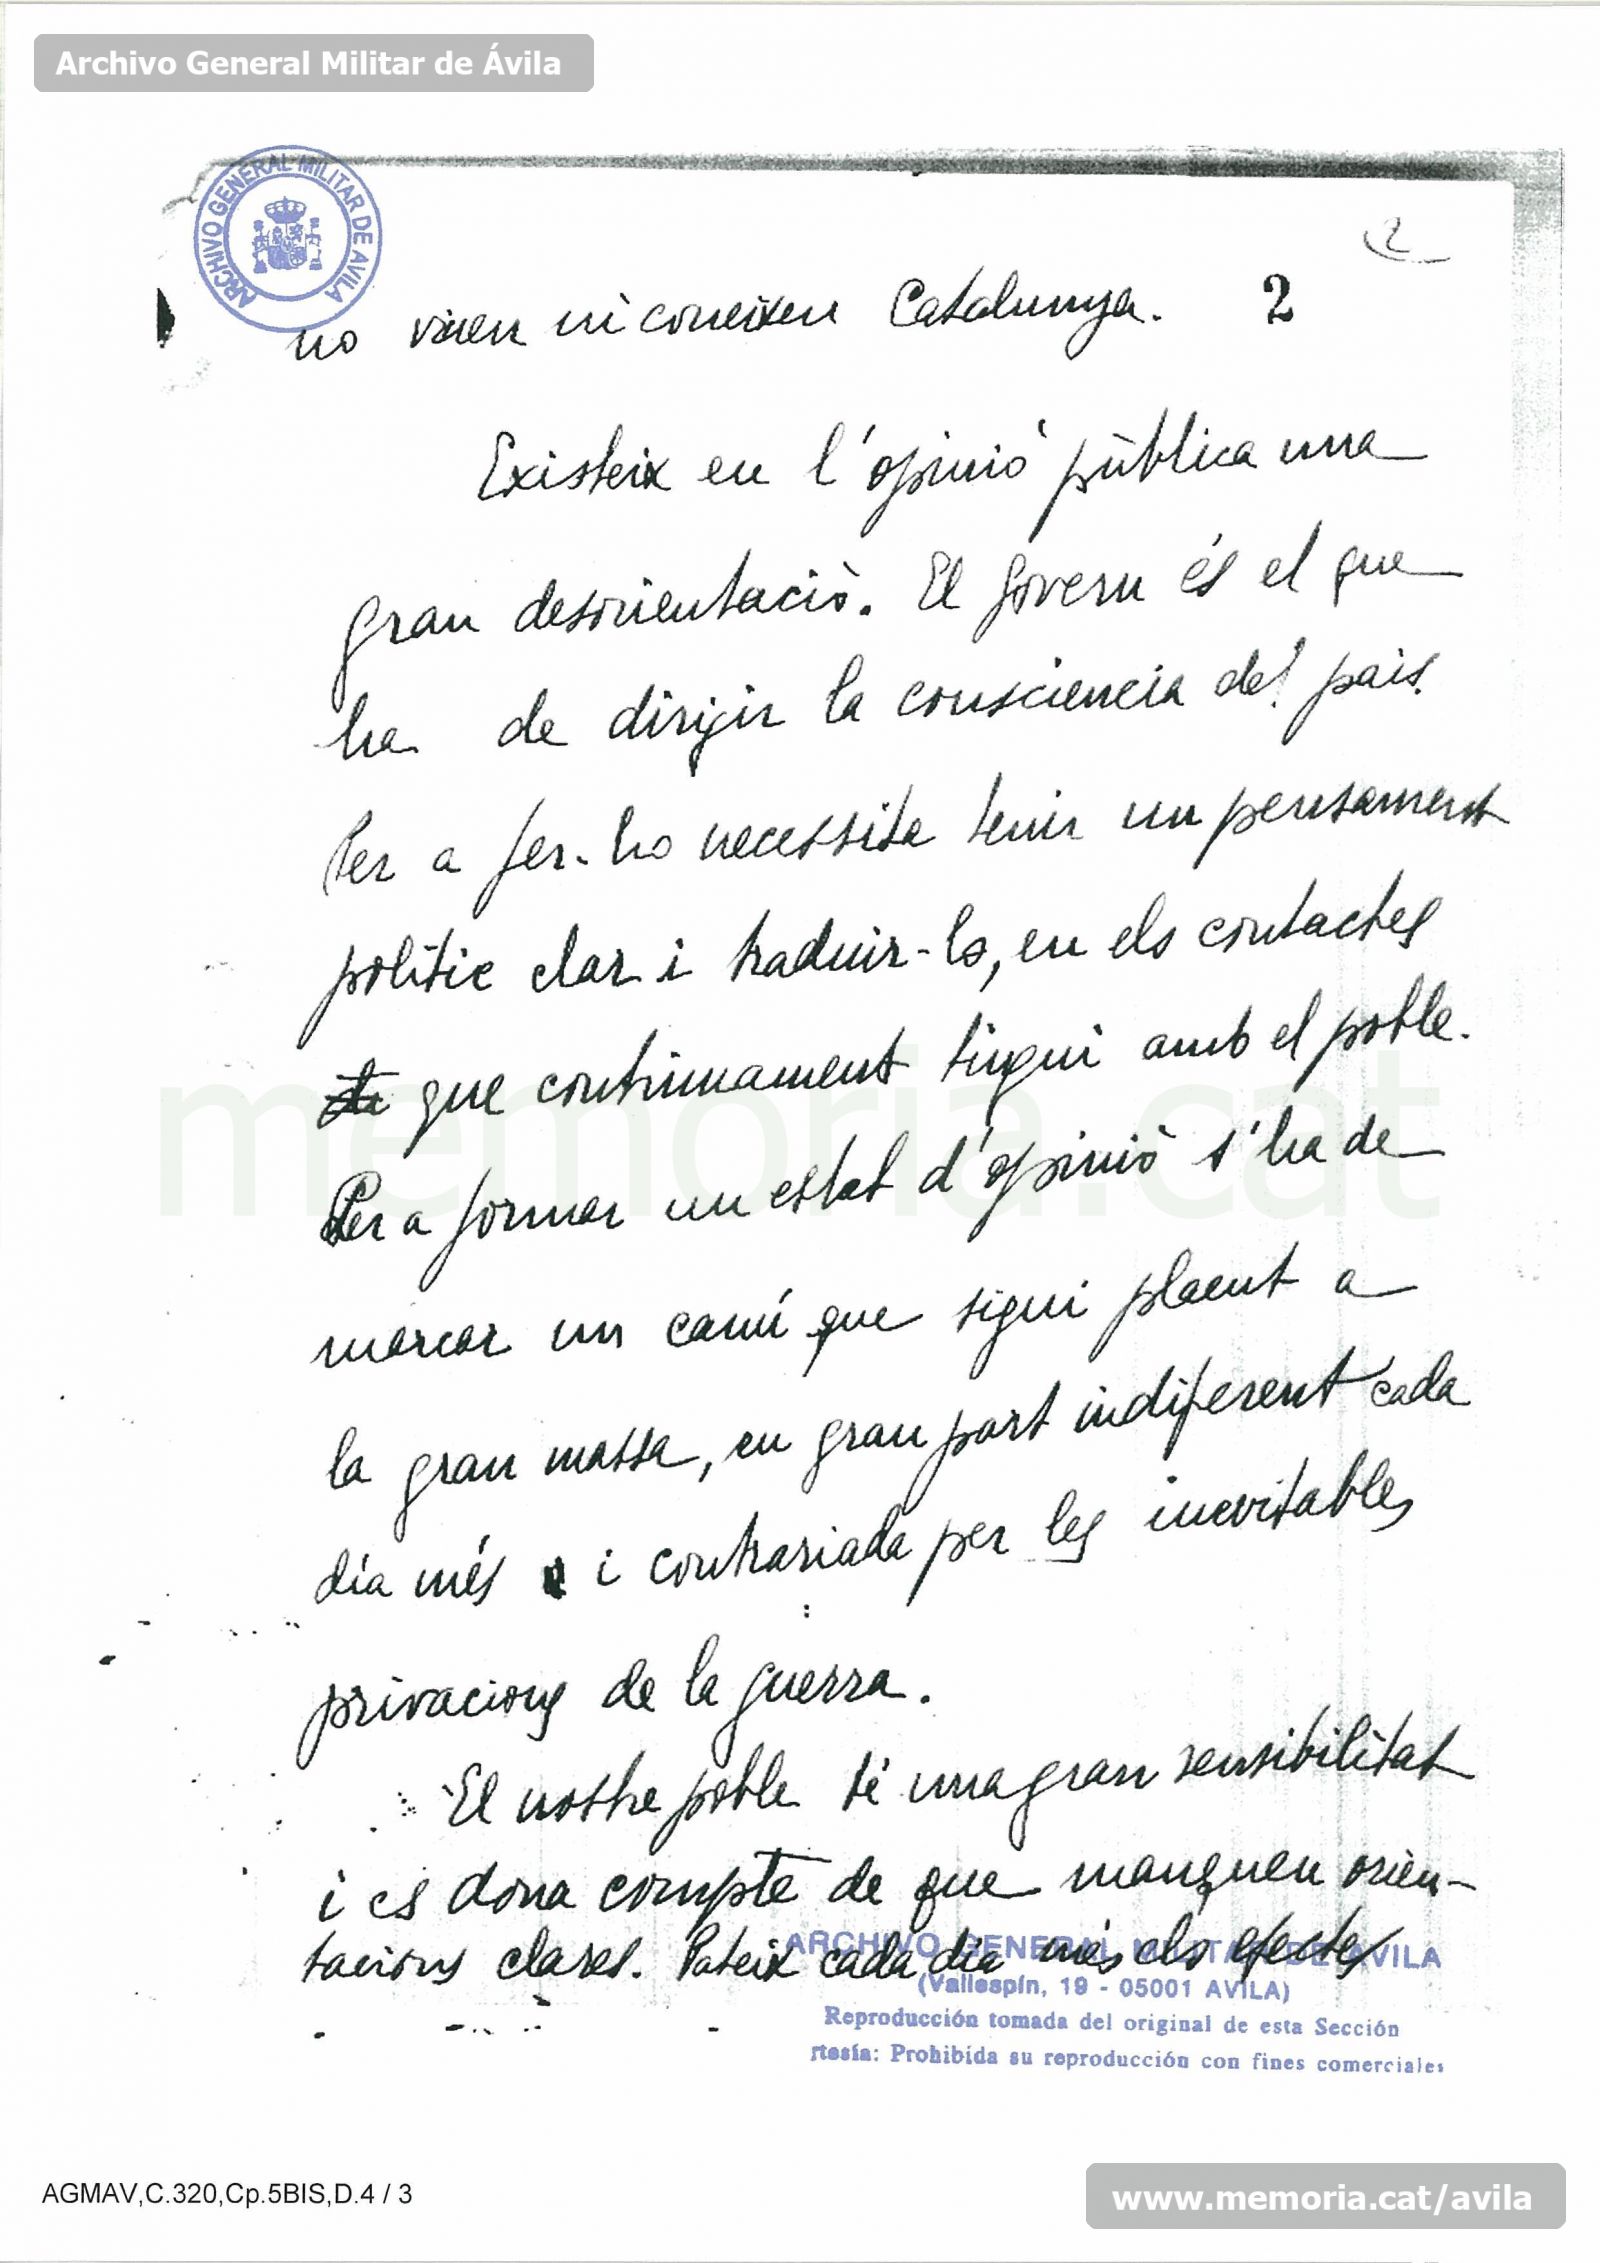 Archivo General Militar de Ávila
ARCHIVO GENERAL MILITAR DE AVILA
2
no viuen ni coneixen Catalunya. 2
Existeix en l'opinió pública una
gran desorientaciò. El govern és el que
ha de dirigir la consciencia del pais.
Per a fer-ho necessita tenir un pensament
polític clar i traduir-lo, en els contactes
que continuament tingui amb el poble.
Per a formar un estat d'opiniò s'ha de
marcar un camí que sigui plaent a
la gran massa, en gran part indiferent cada
día més i contrariada per les inevitables
privacions de la guerra.
El nostre poble té una gran sensibilitat
i es dona compte de que manquen orien-
tacions clares. Pateix cada día més els efectes
ARCHIVO GENERAL MILITAR DE AVILA
(Vallespín, 19 - 05001 AVILA)
Reproducción tomada del original de esta Sección
rtesía: Prohibida su reproducción con fines comerciales
memoria.cat
AGMAV,C.320,Cp.5BIS,D.4 / 3
www.memoria.cat/avila